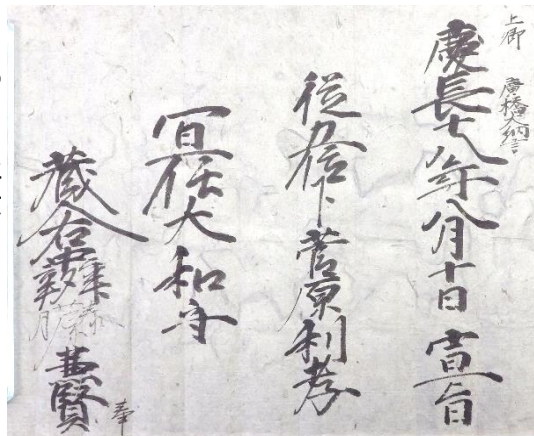 上卿 廣橋大納言
慶長十八年八月十日 宣旨
従五位下菅原利孝
宜任大和守
蔵人右中辨藤原兼賢 奉